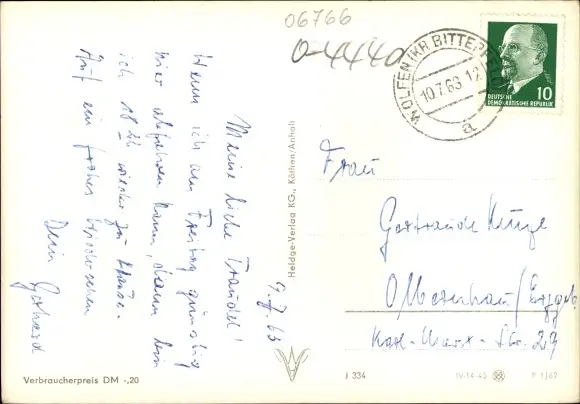 06766
O-4440
WOLFEN (KR BITTERFELD)
10.7.63 12
a
DEUTSCHE
DEMOKRATISCHE REPUBLIK
10
9.7.63
Meine liebe Traudel!
Wenn ich am Freitag günstig
hier abfahren kann, dann bin
ich 18 Uhr wieder zu Hause.
Auf ein frohes Wiedersehen
Dein Gerhard
Heldge-Verlag KG., Köthen/Anhalt
Frau
Gertraude Kunze
Olbernhau/Erzgeb.
Karl-Marx-Str. 29
Verbraucherpreis DM -,20
J 334
IV-14-45
P 1/62